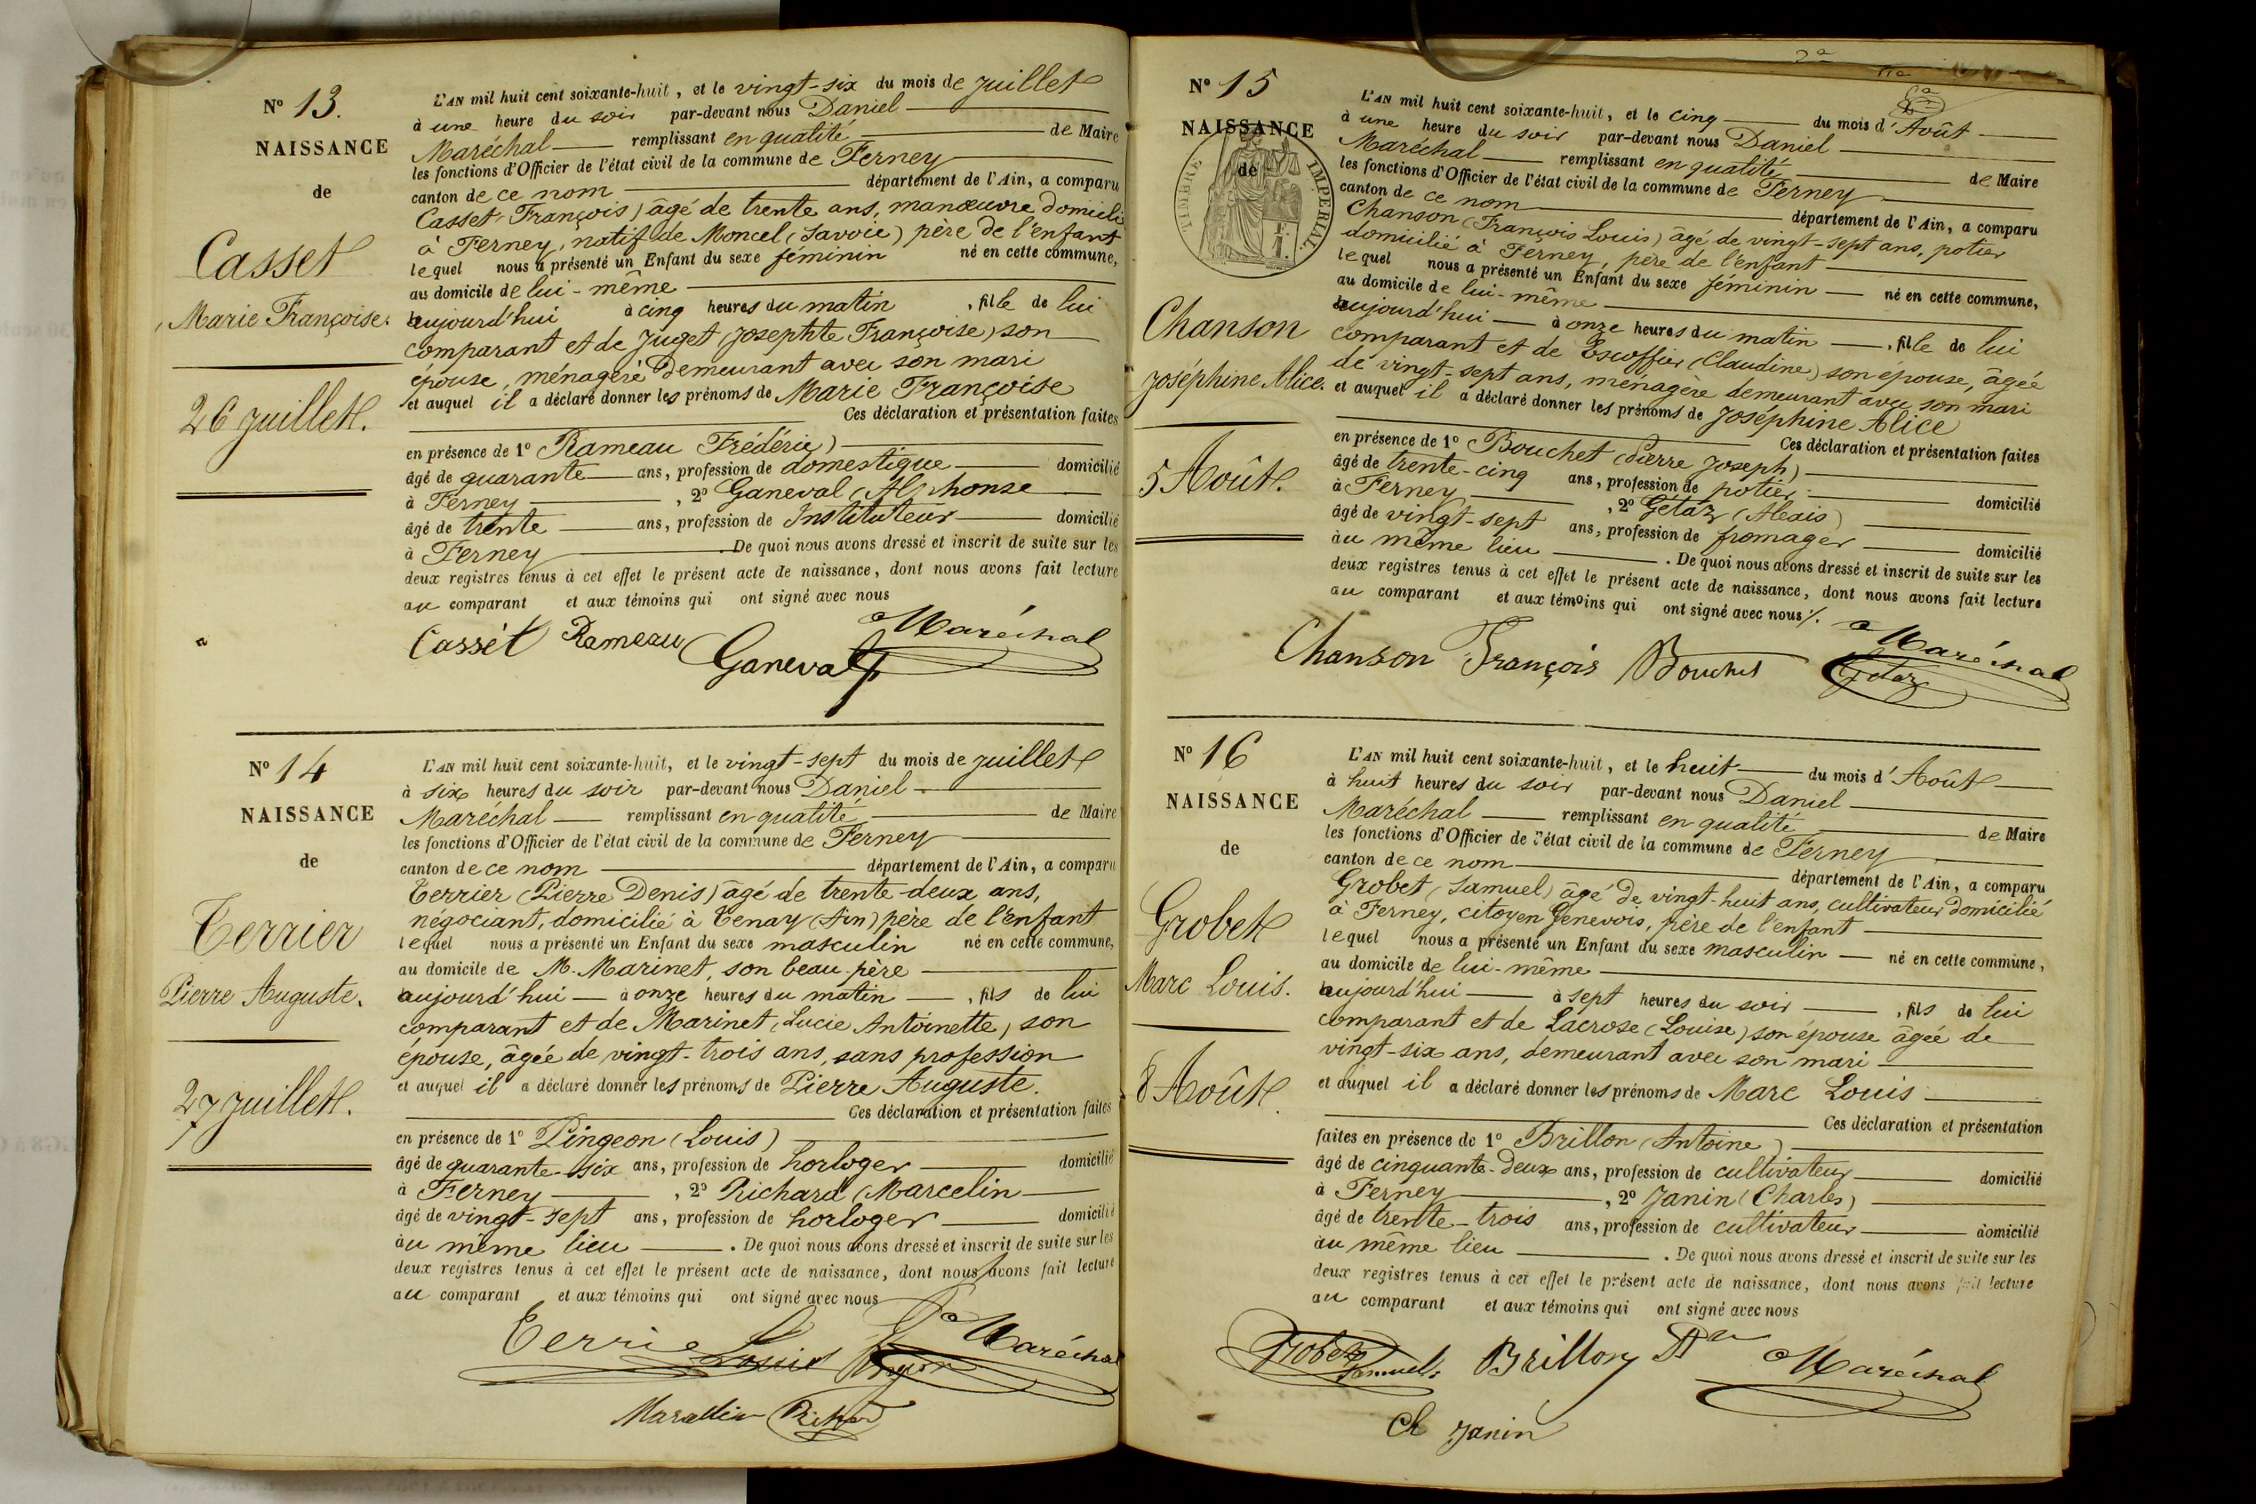 N° 13.
NAISSANCE
de
Casset
Marie Françoise.
26 juillet.
L'AN mil huit cent soixante-huit, et le vingt-six du mois de juillet
à une heure du soir par-devant nous Daniel
Maréchal remplissant en qualité de Maire
les fonctions d'Officier de l'état civil de la commune de Ferney
canton de ce nom département de l'Ain, a comparu
Casset (François) âgé de trente ans, manœuvre domicilié
à Ferney, natif de Moncel (Savoie) père de l'enfant
lequel nous a présenté un Enfant du sexe féminin né en cette commune,
au domicile de lui-même
aujourd'hui à cinq heures du matin, fille de lui
comparant et de Juget (Josephte Françoise) son
épouse, ménagère demeurant avec son mari
et auquel il a déclaré donner les prénoms de Marie Françoise
Ces déclaration et présentation faites
en présence de 1° Rameau Frédéric)
âgé de quarante ans, profession de domestique domicilié
à Ferney, 2° Ganeval (Alphonse
âgé de trente ans, profession de Instituteur domicilié
à Ferney. De quoi nous avons dressé et inscrit de suite sur les
deux registres tenus à cet effet le présent acte de naissance, dont nous avons fait lecture
au comparant et aux témoins qui ont signé avec nous
Casset Rameau Ganeval Maréchal
N° 14
NAISSANCE
de
Terrier
Pierre Auguste.
27 juillet.
L'AN mil huit cent soixante-huit, et le vingt-sept du mois de juillet
à six heures du soir par-devant nous Daniel
Maréchal remplissant en qualité de Maire
les fonctions d'Officier de l'état civil de la commune de Ferney
canton de ce nom département de l'Ain, a comparu
Terrier (Pierre Denis) âgé de trente-deux ans,
négociant, domicilié à Tenay (Ain) père de l'enfant
lequel nous a présenté un Enfant du sexe masculin né en cette commune,
au domicile de M. Marinet, son beau-père
aujourd'hui à onze heures du matin, fils de lui
comparant et de Marinet (Lucie Antoinette) son
épouse, âgée de vingt-trois ans, sans profession
et auquel il a déclaré donner les prénoms de Pierre Auguste.
Ces déclaration et présentation faites
en présence de 1° Pingeon (Louis)
âgé de quarante-six ans, profession de horloger domicilié
à Ferney, 2° Richard (Marcelin
âgé de vingt-sept ans, profession de horloger domicilié
au même lieu. De quoi nous avons dressé et inscrit de suite sur les
deux registres tenus à cet effet le présent acte de naissance, dont nous avons fait lecture
au comparant et aux témoins qui ont signé avec nous
Terrier Louis Pingeon Maréchal
Marcellin Richard
N° 15
NAISSANCE
de
TIMBRE IMPERIAL.
Chanson
Joséphine Alice.
5 Août.
L'AN mil huit cent soixante-huit, et le cinq du mois d'Août
à une heure du soir par-devant nous Daniel
Maréchal remplissant en qualité de Maire
les fonctions d'Officier de l'état civil de la commune de Ferney
canton de ce nom département de l'Ain, a comparu
Chanson (François Louis) âgé de vingt-sept ans, potier
domicilié à Ferney, père de l'enfant
lequel nous a présenté un Enfant du sexe féminin né en cette commune,
au domicile de lui-même
aujourd'hui à onze heures du matin, fille de lui
comparant et de Escoffier (Claudine) son épouse, âgée
de vingt-sept ans, ménagère demeurant avec son mari
et auquel il a déclaré donner les prénoms de Joséphine Alice
Ces déclaration et présentation faites
en présence de 1° Bouchet (Pierre Joseph)
âgé de trente-cinq ans, profession de potier domicilié
à Ferney, 2° Gétaz (Alexis)
âgé de vingt-sept ans, profession de fromager domicilié
au même lieu. De quoi nous avons dressé et inscrit de suite sur les
deux registres tenus à cet effet le présent acte de naissance, dont nous avons fait lecture
au comparant et aux témoins qui ont signé avec nous
Chanson François Bouchet Getaz Maréchal
N° 16
NAISSANCE
de
Grobet
Marc Louis.
8 Août.
L'AN mil huit cent soixante-huit, et le huit du mois d'Août
à huit heures du soir par-devant nous Daniel
Maréchal remplissant en qualité de Maire
les fonctions d'Officier de l'état civil de la commune de Ferney
canton de ce nom département de l'Ain, a comparu
Grobet (Samuel) âgé de vingt-huit ans, cultivateur domicilié
à Ferney, citoyen Genevois, père de l'enfant
lequel nous a présenté un Enfant du sexe masculin né en cette commune,
au domicile de lui-même
aujourd'hui à sept heures du soir, fils de lui
comparant et de Lacrose (Louise) son épouse âgée de
vingt-six ans, demeurant avec son mari
et auquel il a déclaré donner les prénoms de Marc Louis
Ces déclaration et présentation
faites en présence de 1° Brillon (Antoine)
âgé de cinquante-deux ans, profession de cultivateur domicilié
à Ferney, 2° Janin (Charles)
âgé de trente-trois ans, profession de cultivateur domicilié
au même lieu. De quoi nous avons dressé et inscrit de suite sur les
deux registres tenus à cet effet le présent acte de naissance, dont nous avons fait lecture
au comparant et aux témoins qui ont signé avec nous
Grobet Samuel Brillon Maréchal
Ch Janin